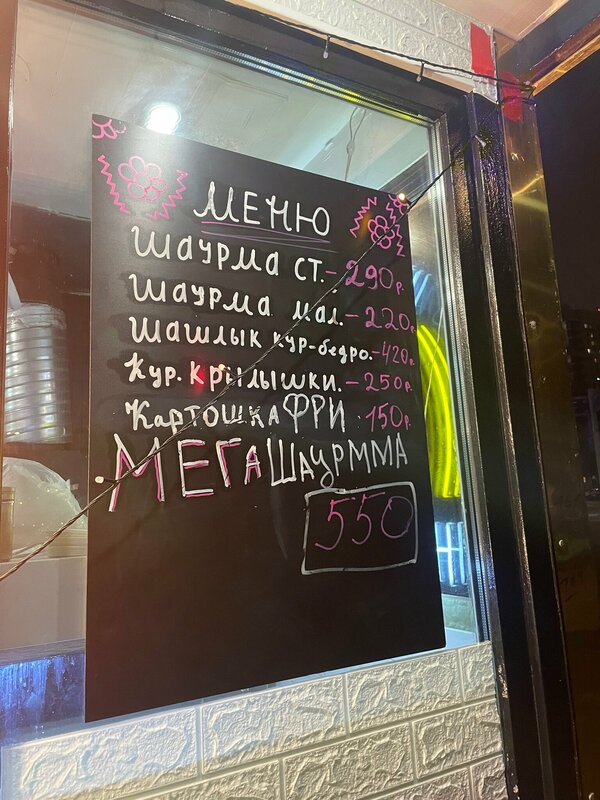 МЕНЮ
ШАУРМА СТ.-290р.
ШАУРМА МАЛ.-220р.
ШАШЛЫК КУР-бедро.-420р.
Кур.КРЫЛЫШКИ.-250р.
КАРТОШКА ФРИ 150р.
МЕГА ШАУРММА
550